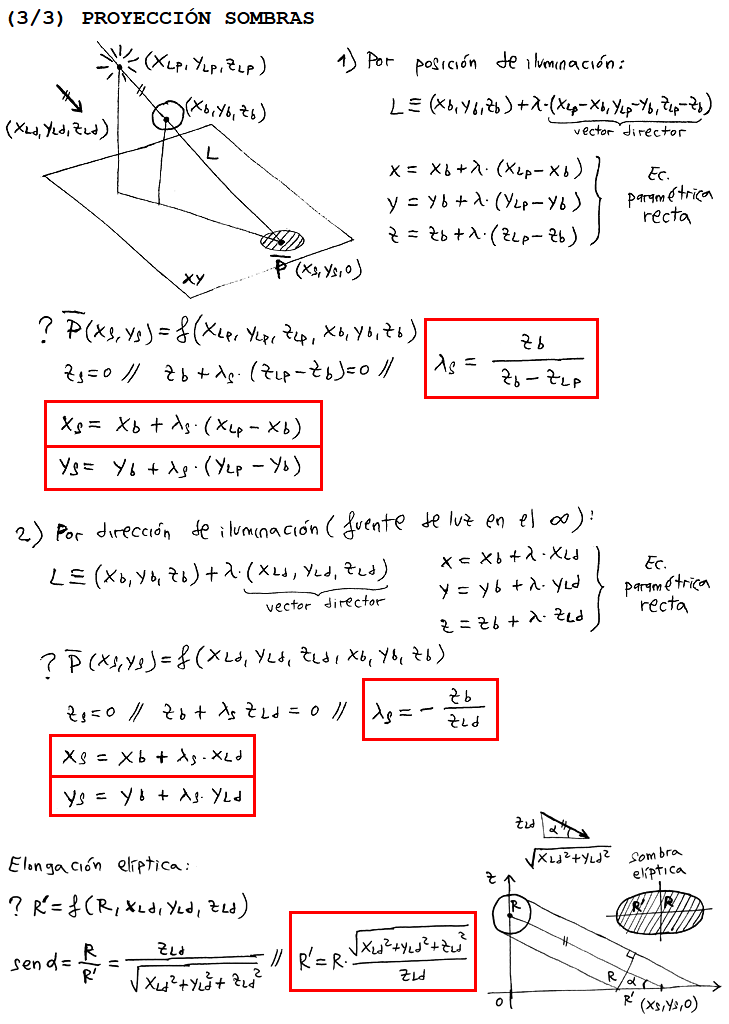 (3/3) PROYECCIÓN SOMBRAS
(XLP, YLP, ZLP)
(Xb, Yb, Zb)
(XLd, YLd, ZLd)
L
P̅ (Xs, Ys, 0)
XY
1) Por posición de iluminación:
L ≡ (Xb, Yb, Zb) + λ·(XLp-Xb, YLp-Yb, ZLp-Zb)
vector director
X = Xb + λ·(XLp-Xb)
Y = Yb + λ·(YLp-Yb)
Z = Zb + λ·(ZLp-Zb)
Ec.
paramétrica
recta
? P̅(Xs, Ys) = f(XLp, YLp, ZLp, Xb, Yb, Zb)
Zs=0 // Zb + λs·(ZLP-Zb)=0 //
λs = Zb / (Zb - ZLP)
Xs = Xb + λs·(XLp - Xb)
Ys = Yb + λs·(YLp - Yb)
2) Por dirección de iluminación (fuente de luz en el ∞):
L ≡ (Xb, Yb, Zb) + λ·(XLd, YLd, ZLd)
vector director
X = Xb + λ·XLd
Y = Yb + λ·YLd
Z = Zb + λ·ZLd
Ec.
paramétrica
recta
? P̅ (Xs, Ys) = f(XLd, YLd, ZLd, Xb, Yb, Zb)
Zs=0 // Zb + λs ZLd = 0 //
λs = - Zb / ZLd
Xs = Xb + λs·XLd
Ys = Yb + λs·YLd
Elongación elíptica:
? R' = f(R, XLd, YLd, ZLd)
sen α = R / R' = ZLd / √(XLd² + YLd² + ZLd²) //
R' = R· √(XLd² + YLd² + ZLd²) / ZLd
ZLd
α
√(XLd² + YLd²)
sombra
elíptica
R' R
Z
R
R
α
0
R'
(Xs, Ys, 0)